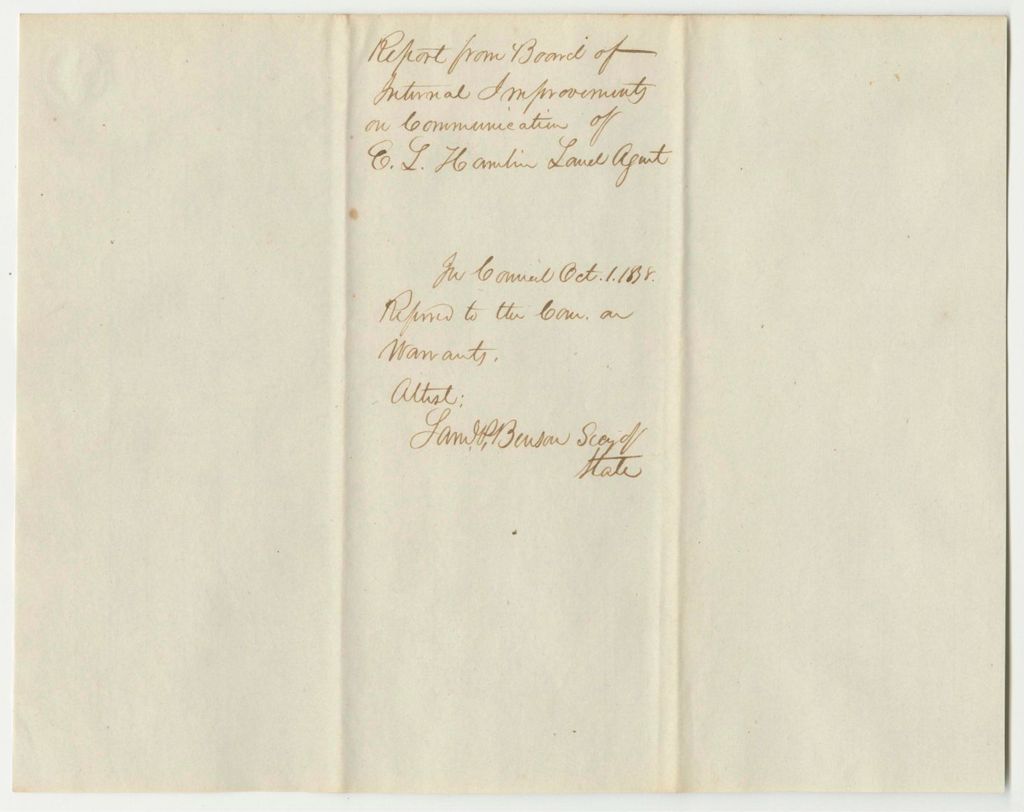 Report from Board of
Internal Improvements
on Communication of
E. L. Hamlin Land Agent
In Council Oct. 1. 1838.
Referred to the Com. on
Warrants.
Attest:
Saml. P. Benson Secy of
State